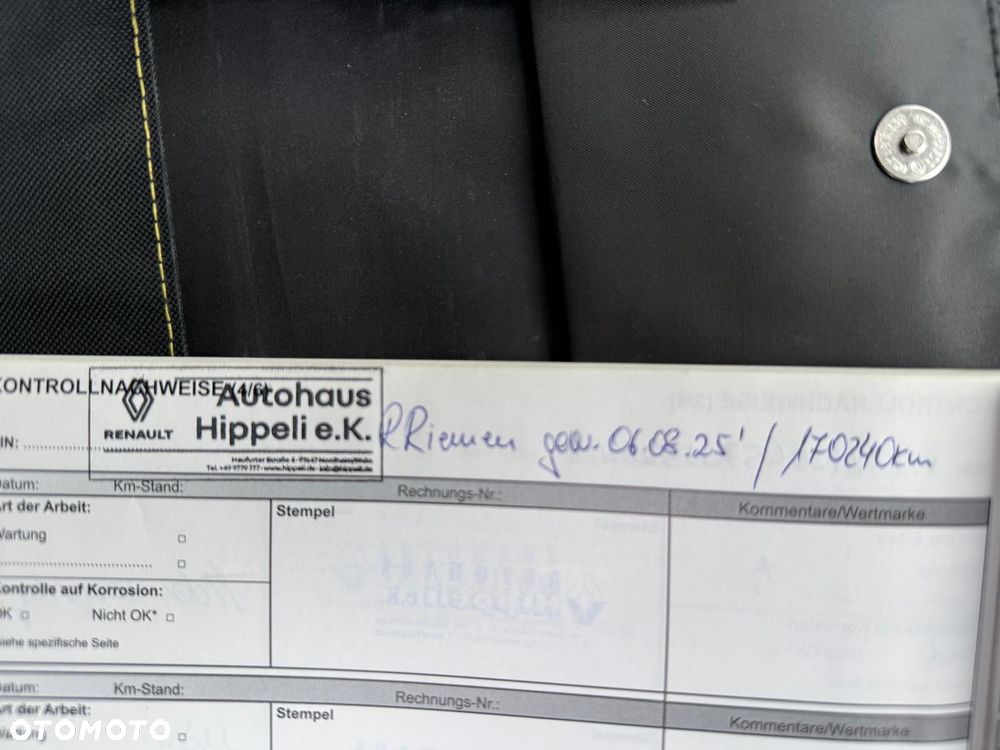 KONTROLLNACHWEISE (4/6)
RENAULT
Autohaus
Hippeli e.K.
RRiemen gew. 06.08.25 / 170240km
IN:
Datum: Km-Stand: Rechnungs-Nr.:
Art der Arbeit:
Stempel
Kommentare/Wertmarke
Wartung
Kontrolle auf Korrosion:
OK Nicht OK*
siehe spezifische Seite
Datum: Km-Stand: Rechnungs-Nr.:
Art der Arbeit:
Stempel
Kommentare/Wertmarke
Wartung
OTOMOTO